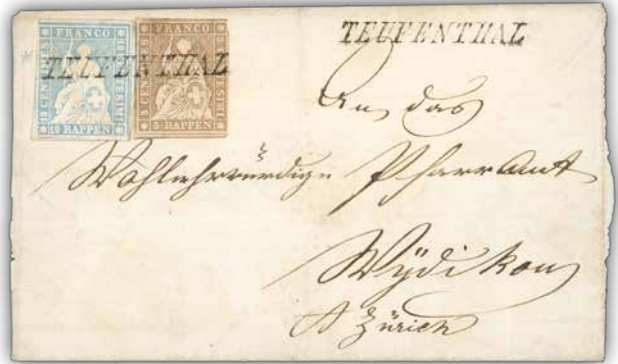 TEUFENTHAL
FRANCO FRANCO
TEUFENTHAL
10 RAPPEN 5 RAPPEN
An das
Wohlehrwürdige Pfarr Amt
Wÿdikon
Zürich